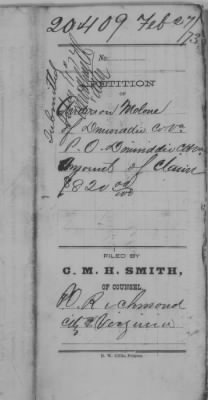 20409 Feb 27/73
Submitted
No.
PETITION
OF
Anderson Melone
of Dinwiddie Co Va
P.O. Dinwiddie CH Va
Amount of Claim
$820 00/100
FILED BY
G. M. H. SMITH,
OF COUNSEL,
Richmond
City Virginia